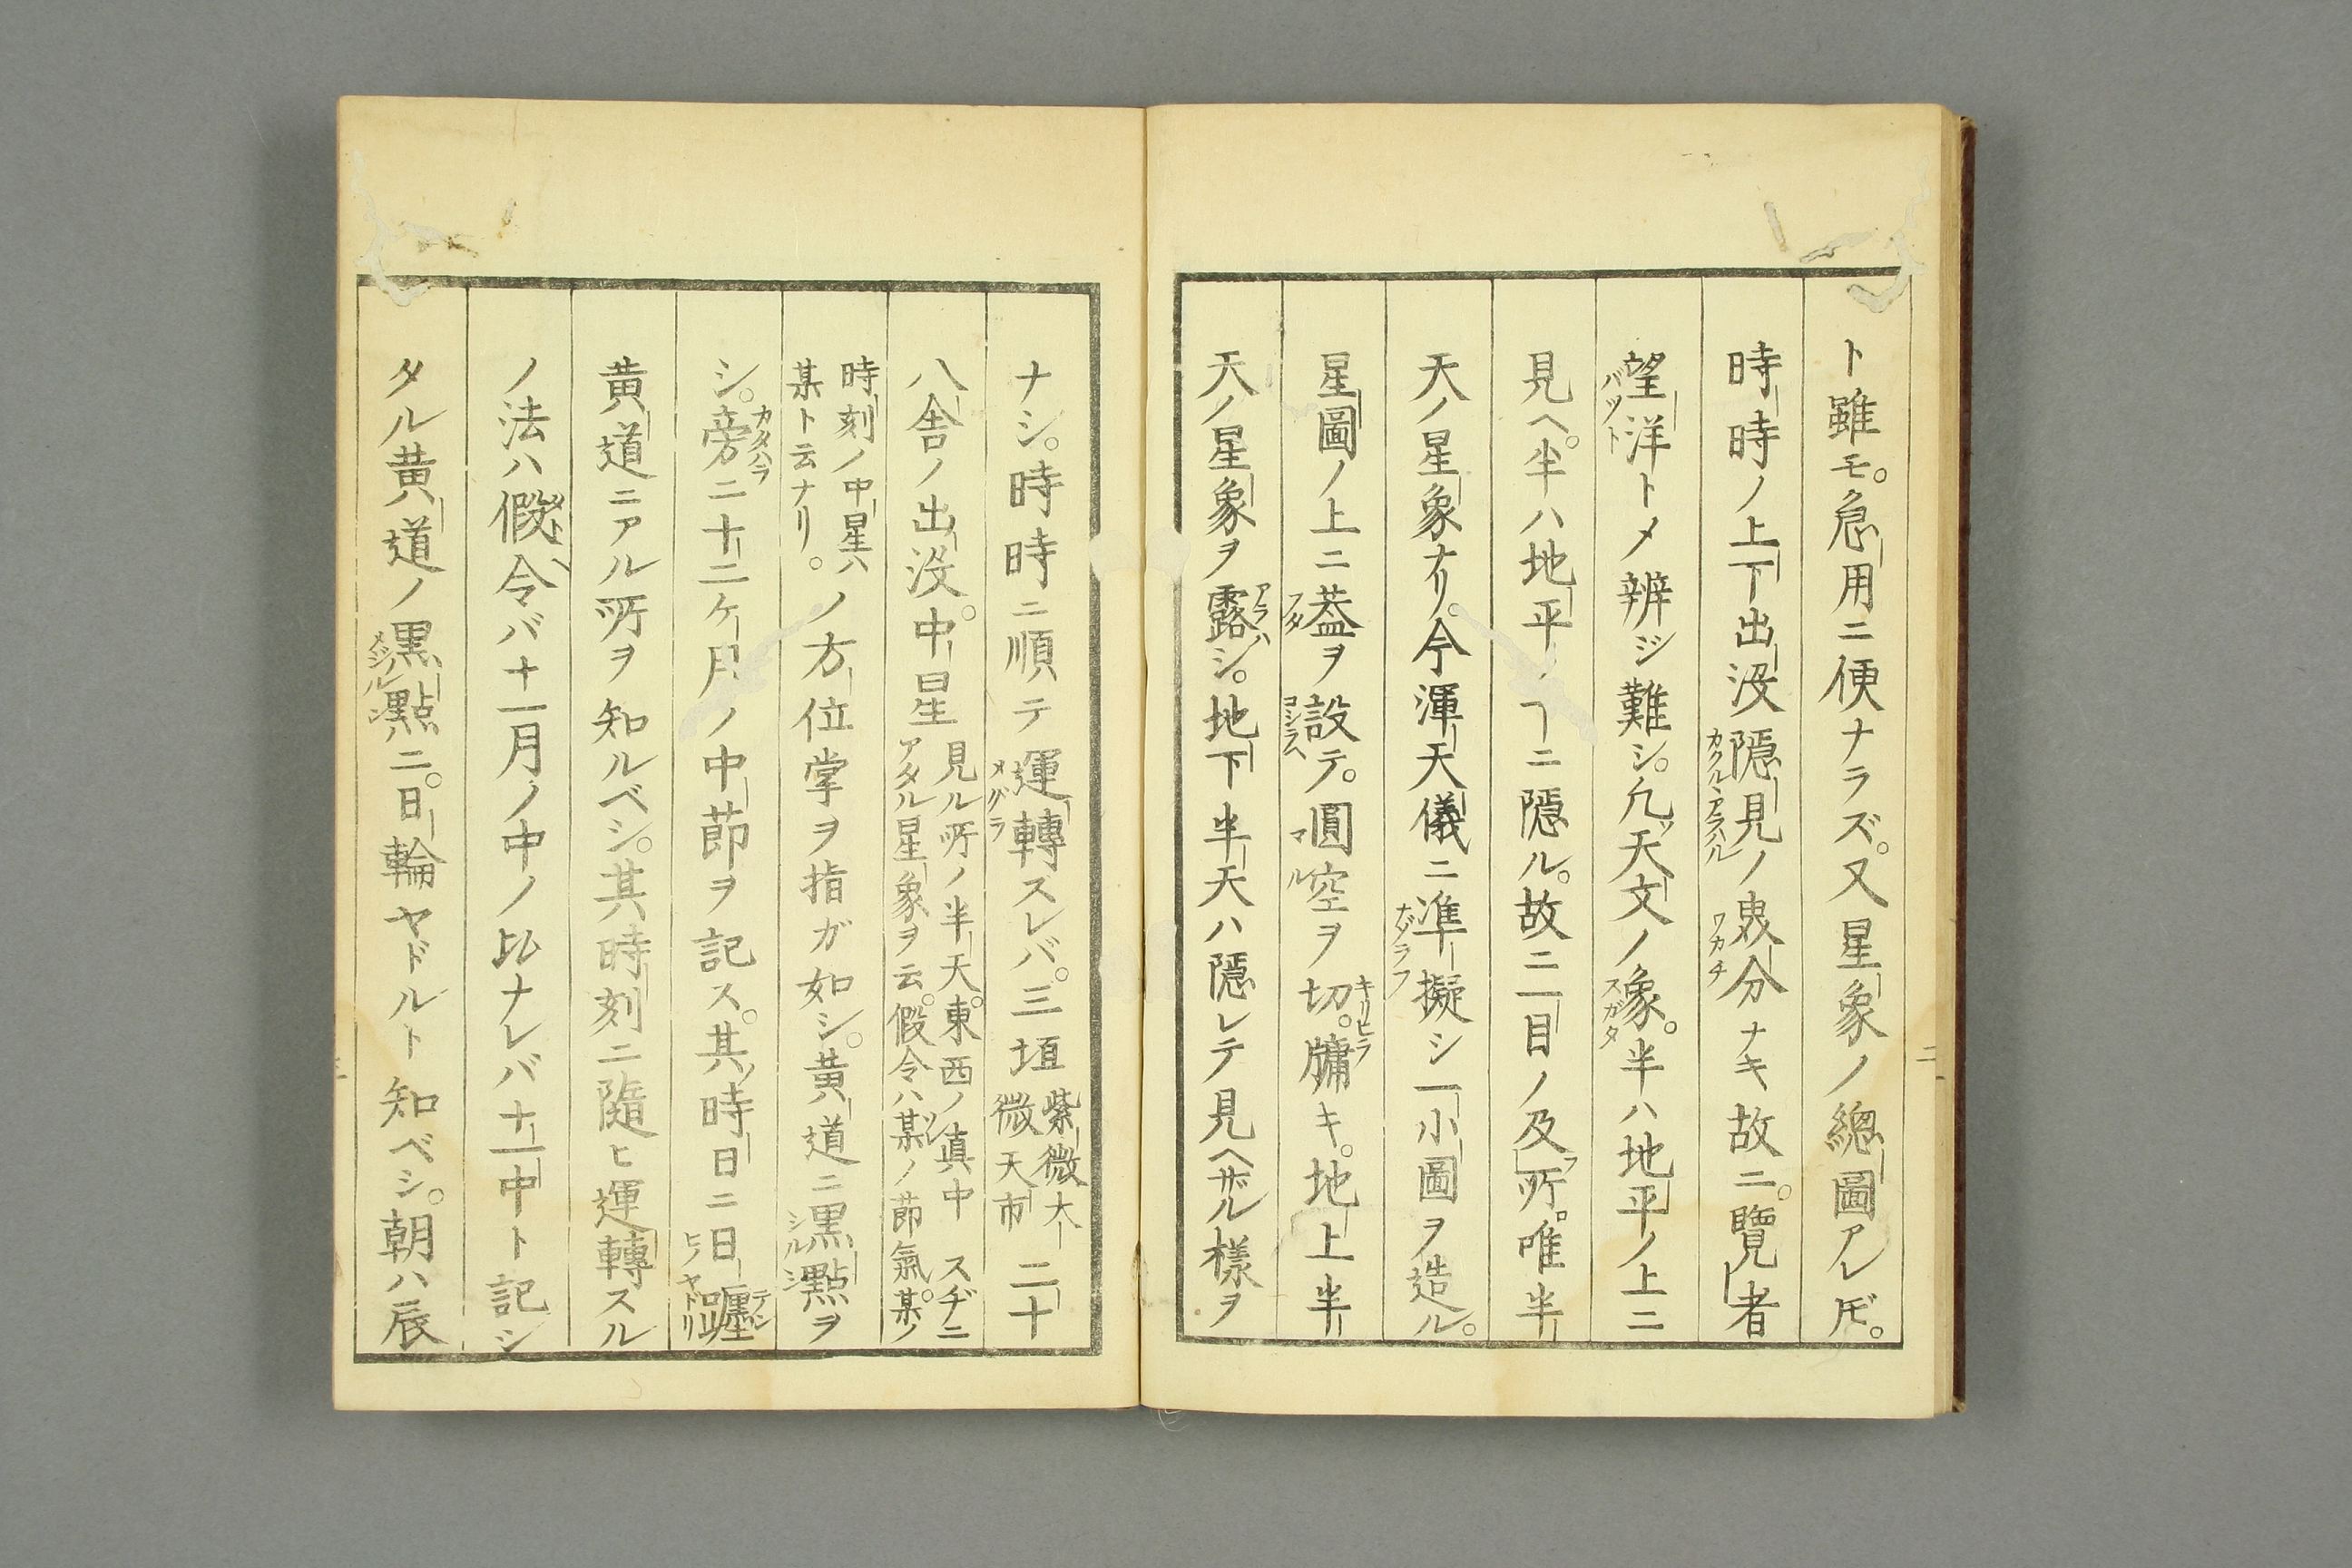 ト雖モ。急用ニ便ナラズ。又星象ノ總圖アレ𪜈。
時時ノ上下出沒隱見ノ
分ナキ故ニ。覽者
望洋トメ辨ジ難シ。凢天文ノ象。半ハ地平ノ上ニ
見ヘ。半ハ地平ノヿニ隱ル。故ニ一目ノ及所。唯半
天ノ星象ナリ。今渾天儀ニ準擬シ一小圖ヲ造ル。
星圖ノ上ニ葢ヲ設テ。圓空ヲ切。牗キ。地上半
天ノ星象ヲ露シ。地下半天ハ隱レテ見ヘザル樣ヲ
ナシ。時時ニ順テ運轉スレバ。三垣紫微大微天市二十
八舎ノ出沒。中星見ル所ノ半天。東西ノ真中スヂニアタル星象ヲ云。假令ハ某ノ節氣。某ノ
時刻ノ中星ハ某ト云ナリ。ノ方位掌ヲ指ガ如シ。黄道ニ黒點ヲ
シ。旁ニ十二ケ月ノ中節ヲ記ス。其時日ニ日躔
黄道ニアル所ヲ知ルベシ。其時刻ニ隨ヒ運轉スル
ノ法ハ假令バ十一月ノ中ノ比ナレバ十一中ト記シ
タル黄道ノ黒點ニ。日輪ヤドルト知ベシ。朝ハ辰